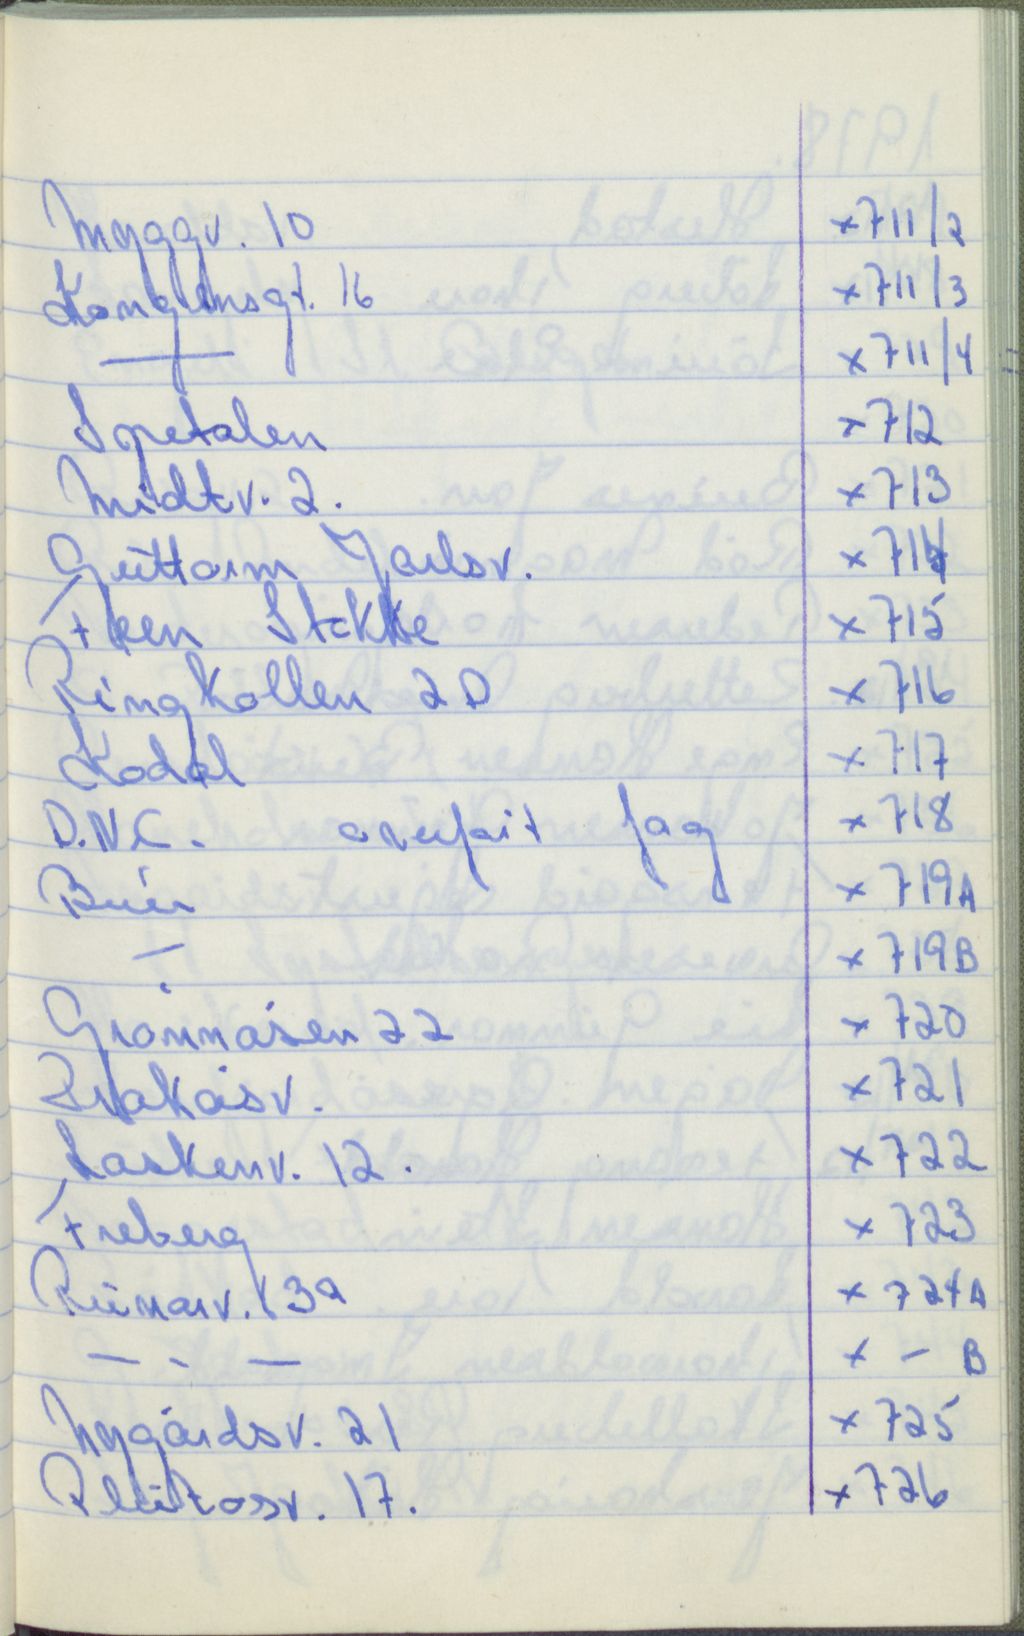 Myggv. 10 x 711/2
Kongensgt. 16 x 711/3
— x 711/4
Spetalen x 712
Midtv. 2. x 713
Guttorm Jarlsv. x 714
Steen Stokke x 715
Ringkollen 2D x 716
Kodal x 717
D.N.C. fag x 718
Buer x 719A
— x 719B
Grønnåsen 22 x 720
x 721
Laskenv. 12. x 722
Freberg x 723
Runarv. 13a x 724A
— - — x — B
Nygårdsv. 21 x 725
Plutosv. 17. x 726